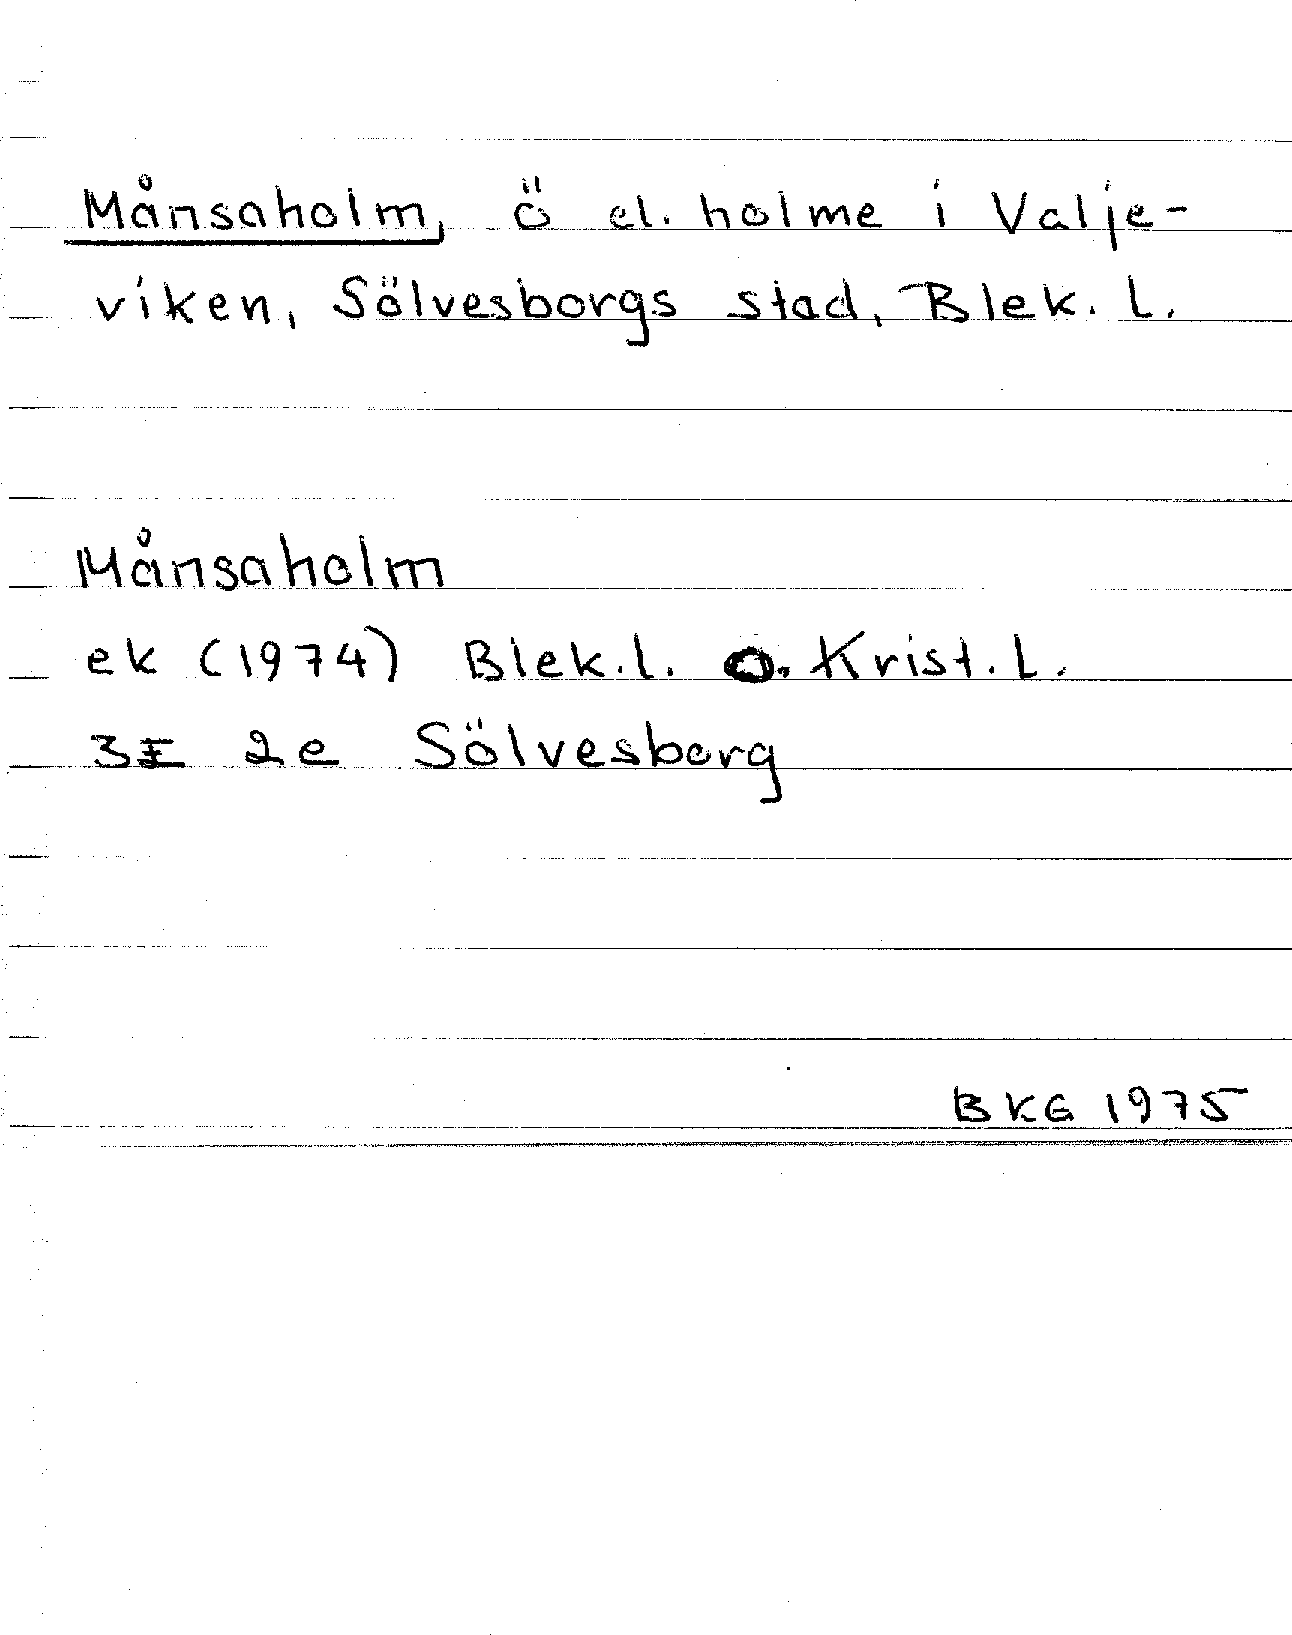 Månsaholm, ö el. holme i Valje-
viken, Sölvesborgs stad, Blek. l.
Månsaholm
ek (1974) Blek.l. o. Krist. l.
3E 2e Sölvesborg
BKG 1975